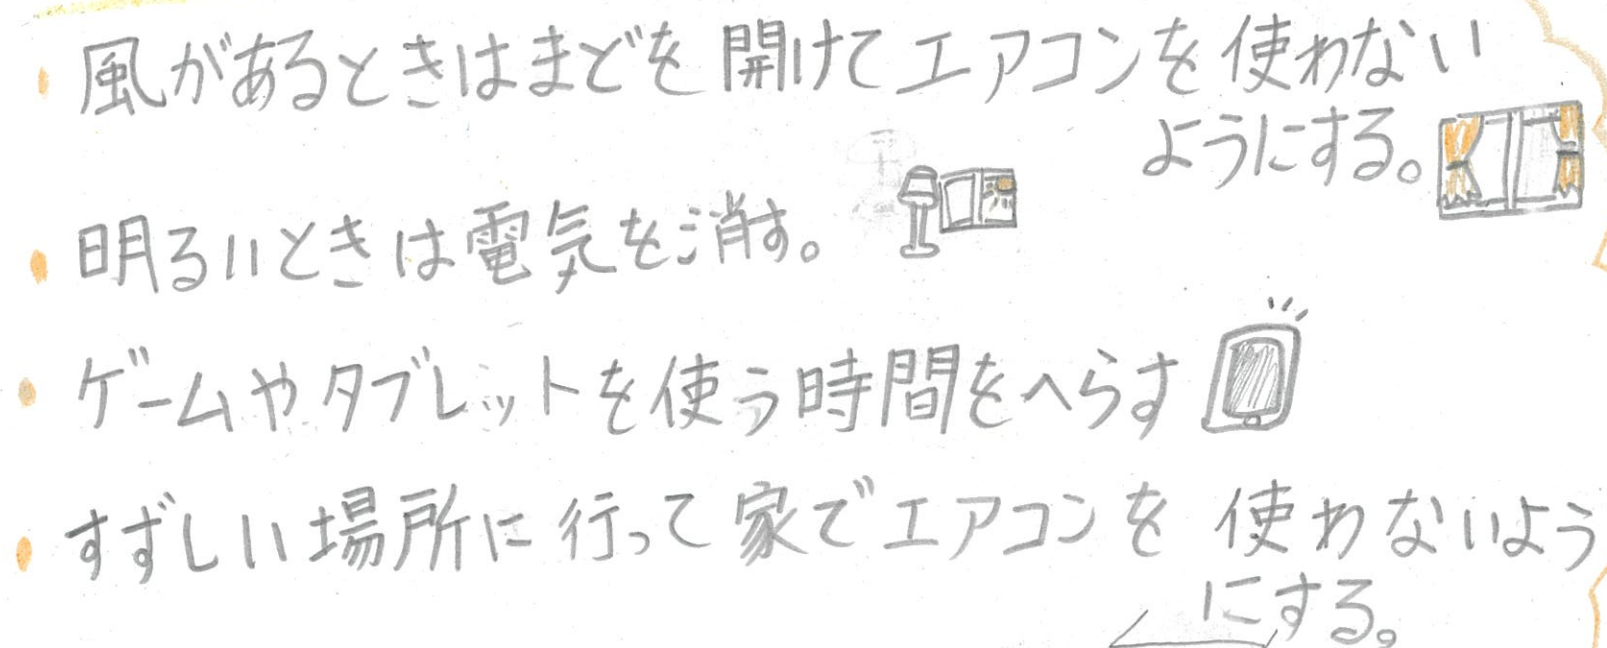 ・風があるときはまどを開けてエアコンを使わない
ようにする。
・明るいときは電気を消す。
・ゲームやタブレットを使う時間をへらす
・すずしい場所に行って家でエアコンを使わないよう
にする。